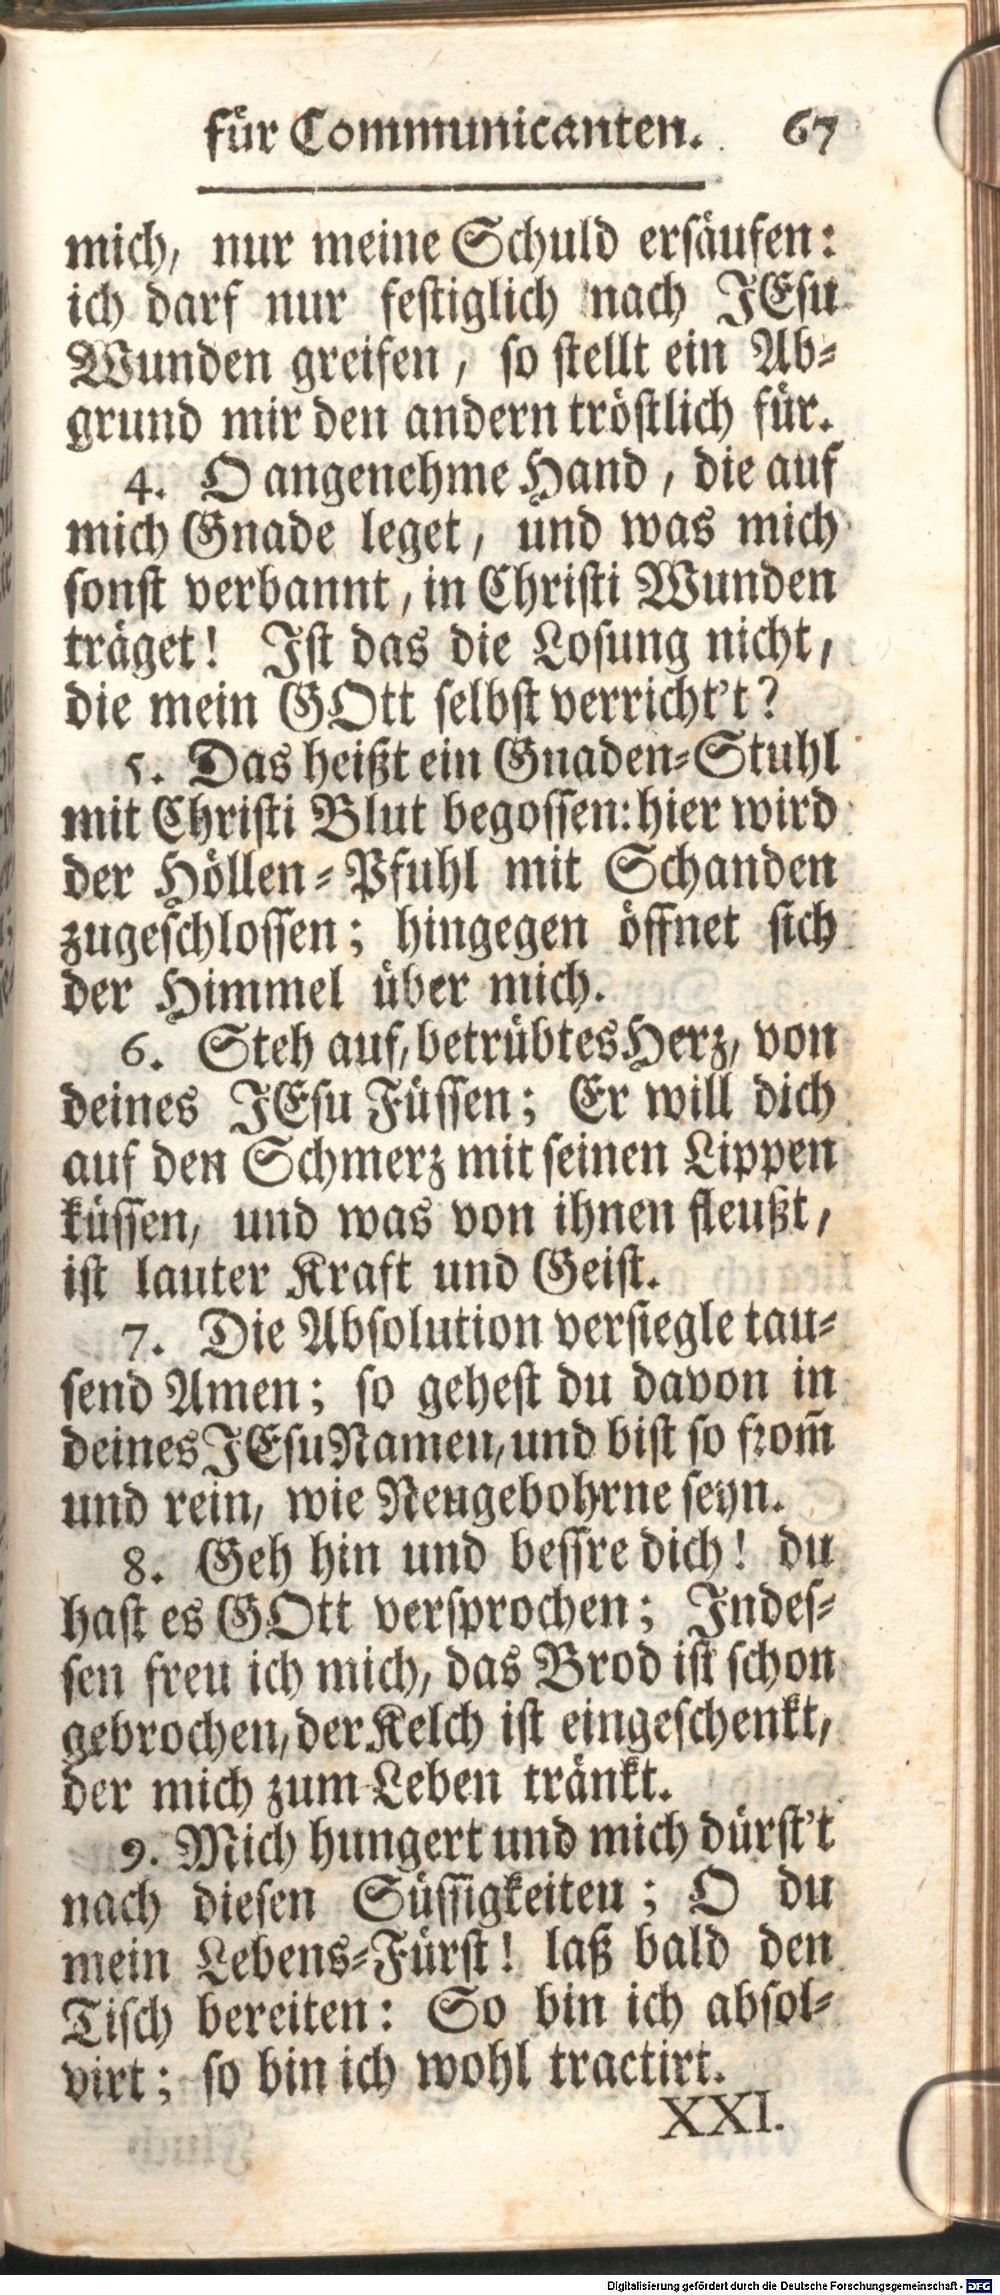 für Communicanten. 67
mich, nur meine Schuld ersäufen:
ich darf nur festiglich nach JEsu
Wunden greifen, so stellt ein Ab-
grund mir den andern tröstlich für.
4. O angenehme Hand, die auf
mich Gnade leget, und was mich
sonst verbannt, in Christi Wunden
träget! Ist das die Losung nicht,
die mein GOtt selbst verricht't?
5. Das heißt ein Gnaden-Stuhl
mit Christi Blut begossen: hier wird
der Höllen-Pfuhl mit Schanden
zugeschlossen; hingegen öffnet sich
der Himmel über mich.
6. Steh auf, betrübtes Herz, von
deines JEsu Füssen; Er will dich
auf den Schmerz mit seinen Lippen
küssen, und was von ihnen fleußt,
ist lauter Kraft und Geist.
7. Die Absolution versiegle tau-
send Amen; so gehest du davon in
deines JEsu Namen, und bist so from̃
und rein, wie Neugebohrne seyn.
8. Geh hin und bessre dich! du
hast es GOtt versprochen; Indes-
sen freu ich mich, das Brod ist schon
gebrochen, der Kelch ist eingeschenkt,
der mich zum Leben tränkt.
9. Mich hungert und mich dürst't
nach diesen Süssigkeiten; O du
mein Lebens-Fürst! laß bald den
Tisch bereiten: So bin ich absol-
virt; so bin ich wohl tractirt.
XXI.
Digitalisierung gefördert durch die Deutsche Forschungsgemeinschaft - DFG